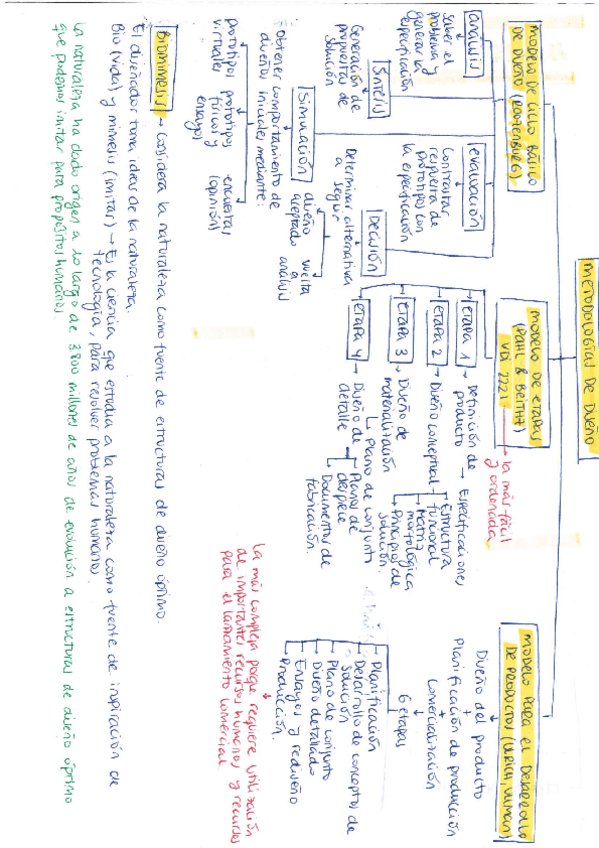 METODOLOGÍAS DE DISEÑO
MODELO DE CICLO BÁSICO
DE DISEÑO (ROOTENBURG)
análisis
Saber el
problema y
generar la
especificación
Síntesis
Generación de
propuestas de
solución
Simulación
Obtener comportamiento de
diseños iniciales mediante:
prototipos
virtuales
prototipos
físicos y
ensayos
encuestas
(opinión)
evaluación
Contrastar
respuesta de
prototipos con
la especificación
Decisión
Determinar alternativa
a seguir
diseño
aceptado
vuelta
a
análisis
MODELO DE ETAPAS
(PAHL & BEITHT)
VDI 2221
la más fácil
y ordenada
etapa 1 → Definición de → Especificaciones
producto
etapa 2 → Diseño conceptual
Estructura
funcional
Matriz
morfológica
Principios de
solución.
etapa 3 → Diseño de
materialización
Plano de conjunto
etapa 4 → Diseño de
detalle
Planos de
despiece
Documentos de
fabricación.
MODELO PARA EL DESARROLLO
DE PRODUCTOS (ULRICH, ULMAN)
Diseño del producto
Planificación de producción
Comercialización
6 etapas
Planificación
Desarrollo de conceptos de
solución
Plano de conjunto
Diseño detallado
Ensayos y rediseño
Producción.
La más compleja porque requiere utilización
de importantes recursos humanos y recursos
para el lanzamiento comercial
Biomimesis → Considera la naturaleza como fuente de estructuras de diseño óptimo.
El diseñador toma ideas de la naturaleza.
Bio (vida) y mimesis (imitar) → Es la ciencia que estudia a la naturaleza como fuente de inspiración de
tecnología, para resolver problemas humanos.
La naturaleza ha dado origen a lo largo de 3.800 millones de años de evolución a estructuras de diseño óptimo
que podemos imitar para propósitos humanos.